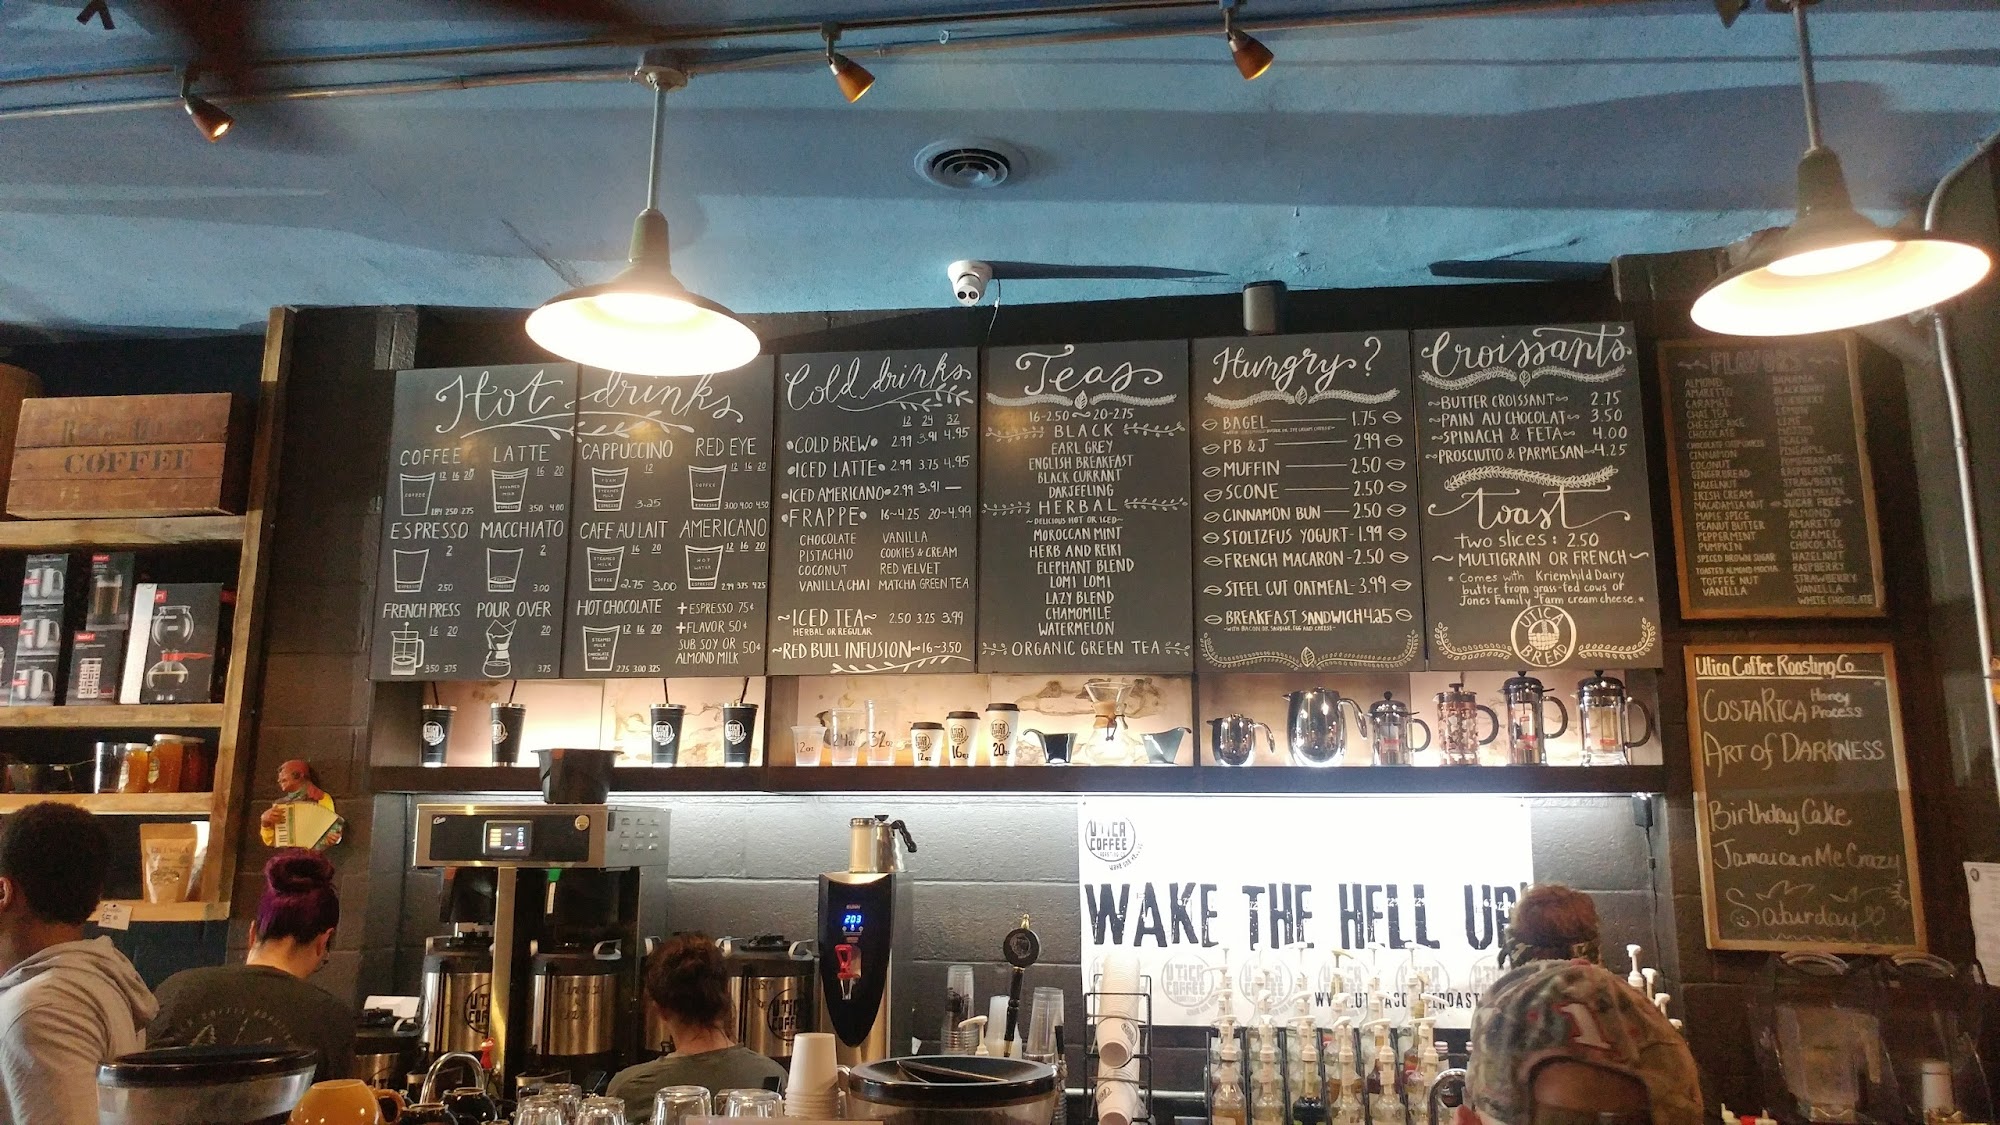 Hot drinks
COFFEE
12 16 20
COFFEE
1.84 2.50 2.75
LATTE
16 20
STEAMED MILK
ESPRESSO
3.50 4.00
CAPPUCCINO
12
FOAM
STEAMED MILK
ESPRESSO
3.25
RED EYE
12 16 20
COFFEE
ESPRESSO
3.00 4.00 4.50
ESPRESSO
2
ESPRESSO
2.50
MACCHIATO
2
FOAM
ESPRESSO
3.00
CAFE AU LAIT
16 20
STEAMED MILK
COFFEE
2.75 3.00
AMERICANO
12 16 20
HOT WATER
ESPRESSO
2.99 3.75 4.25
FRENCH PRESS
16 20
3.50 3.75
POUR OVER
20
3.75
HOT CHOCOLATE
12 16 20
STEAMED MILK
2.75 3.00 3.25
+ ESPRESSO 75¢
+ FLAVOR 50¢
SUB SOY OR 50¢
ALMOND MILK
Cold drinks
12 24 32
COLD BREW 2.99 3.91 4.95
ICED LATTE 2.99 3.75 4.95
ICED AMERICANO 2.99 3.91 —
FRAPPE 16~4.25 20~4.99
CHOCOLATE VANILLA
PISTACHIO COOKIES & CREAM
COCONUT RED VELVET
VANILLA CHAI MATCHA GREEN TEA
~ICED TEA~ 2.50 3.25 3.99
HERBAL OR REGULAR
~RED BULL INFUSION~16~3.50
Teas
16-2.50 ~ 20-2.75
BLACK
EARL GREY
ENGLISH BREAKFAST
BLACK CURRANT
DARJEELING
HERBAL
~DELICIOUS HOT OR ICED~
MOROCCAN MINT
HERB AND REIKI
ELEPHANT BLEND
LOMI LOMI
LAZY BLEND
CHAMOMILE
WATERMELON
ORGANIC GREEN TEA
Hungry?
BAGEL 1.75
PB & J 2.99
MUFFIN 2.50
SCONE 2.50
CINNAMON BUN 2.50
STOLTZFUS YOGURT-1.99
FRENCH MACARON-2.50
STEEL CUT OATMEAL-3.99
BREAKFAST SANDWICH 4.25
~WITH BACON OR SAUSAGE, EGG AND CHEESE~
Croissants
~BUTTER CROISSANT~ 2.75
~PAIN AU CHOCOLAT~ 3.50
~SPINACH & FETA~ 4.00
~PROSCIUTO & PARMESAN~4.25
toast
two slices: 2.50
~MULTIGRAIN OR FRENCH~
* Comes with Kriemhild Dairy
butter from grass-fed cows or
Jones Family Farm cream cheese. *
UTICA
BREAD
FLAVORS
ALMOND
AMARETTO
CARAMEL
CHAI TEA
CHEESECAKE
CHOCOLATE
CINNAMON
COCONUT
GINGERBREAD
HAZELNUT
IRISH CREAM
MACADAMIA NUT
MAPLE SPICE
PEANUT BUTTER
PEPPERMINT
PUMPKIN
SPICED BROWN SUGAR
TOASTED ALMOND MOCHA
TOFFEE NUT
VANILLA
BANANA
BLACKBERRY
BLUEBERRY
LEMON
LIME
MOJITO
PEACH
PINEAPPLE
POMEGRANATE
RASPBERRY
STRAWBERRY
WATERMELON
SUGAR FREE
ALMOND
AMARETTO
CARAMEL
CHOCOLATE
HAZELNUT
RASPBERRY
STRAWBERRY
VANILLA
WHITE CHOCOLATE
Utica Coffee Roasting Co.
COSTA RICA Honey Process
ART OF DARKNESS
Birthday Cake
Jamaican Me Crazy
Saturday
COFFEE
bodum
bodum
12oz 24oz 32oz
12oz 16oz 20oz
UTICA COFFEE
203
UTICA
COFFEE
ROASTING
WAKE THE HELL UP!